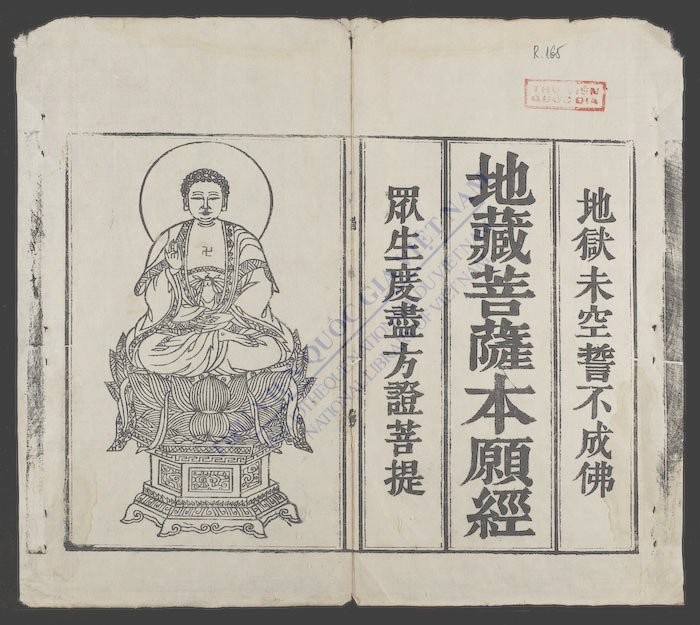 R.165
THƯ VIỆN
QUỐC GIA
地獄未空誓不成佛
地藏菩薩本願經
眾生度盡方證菩提
卍
NATIONAL LIBRARY OF VIETNAM